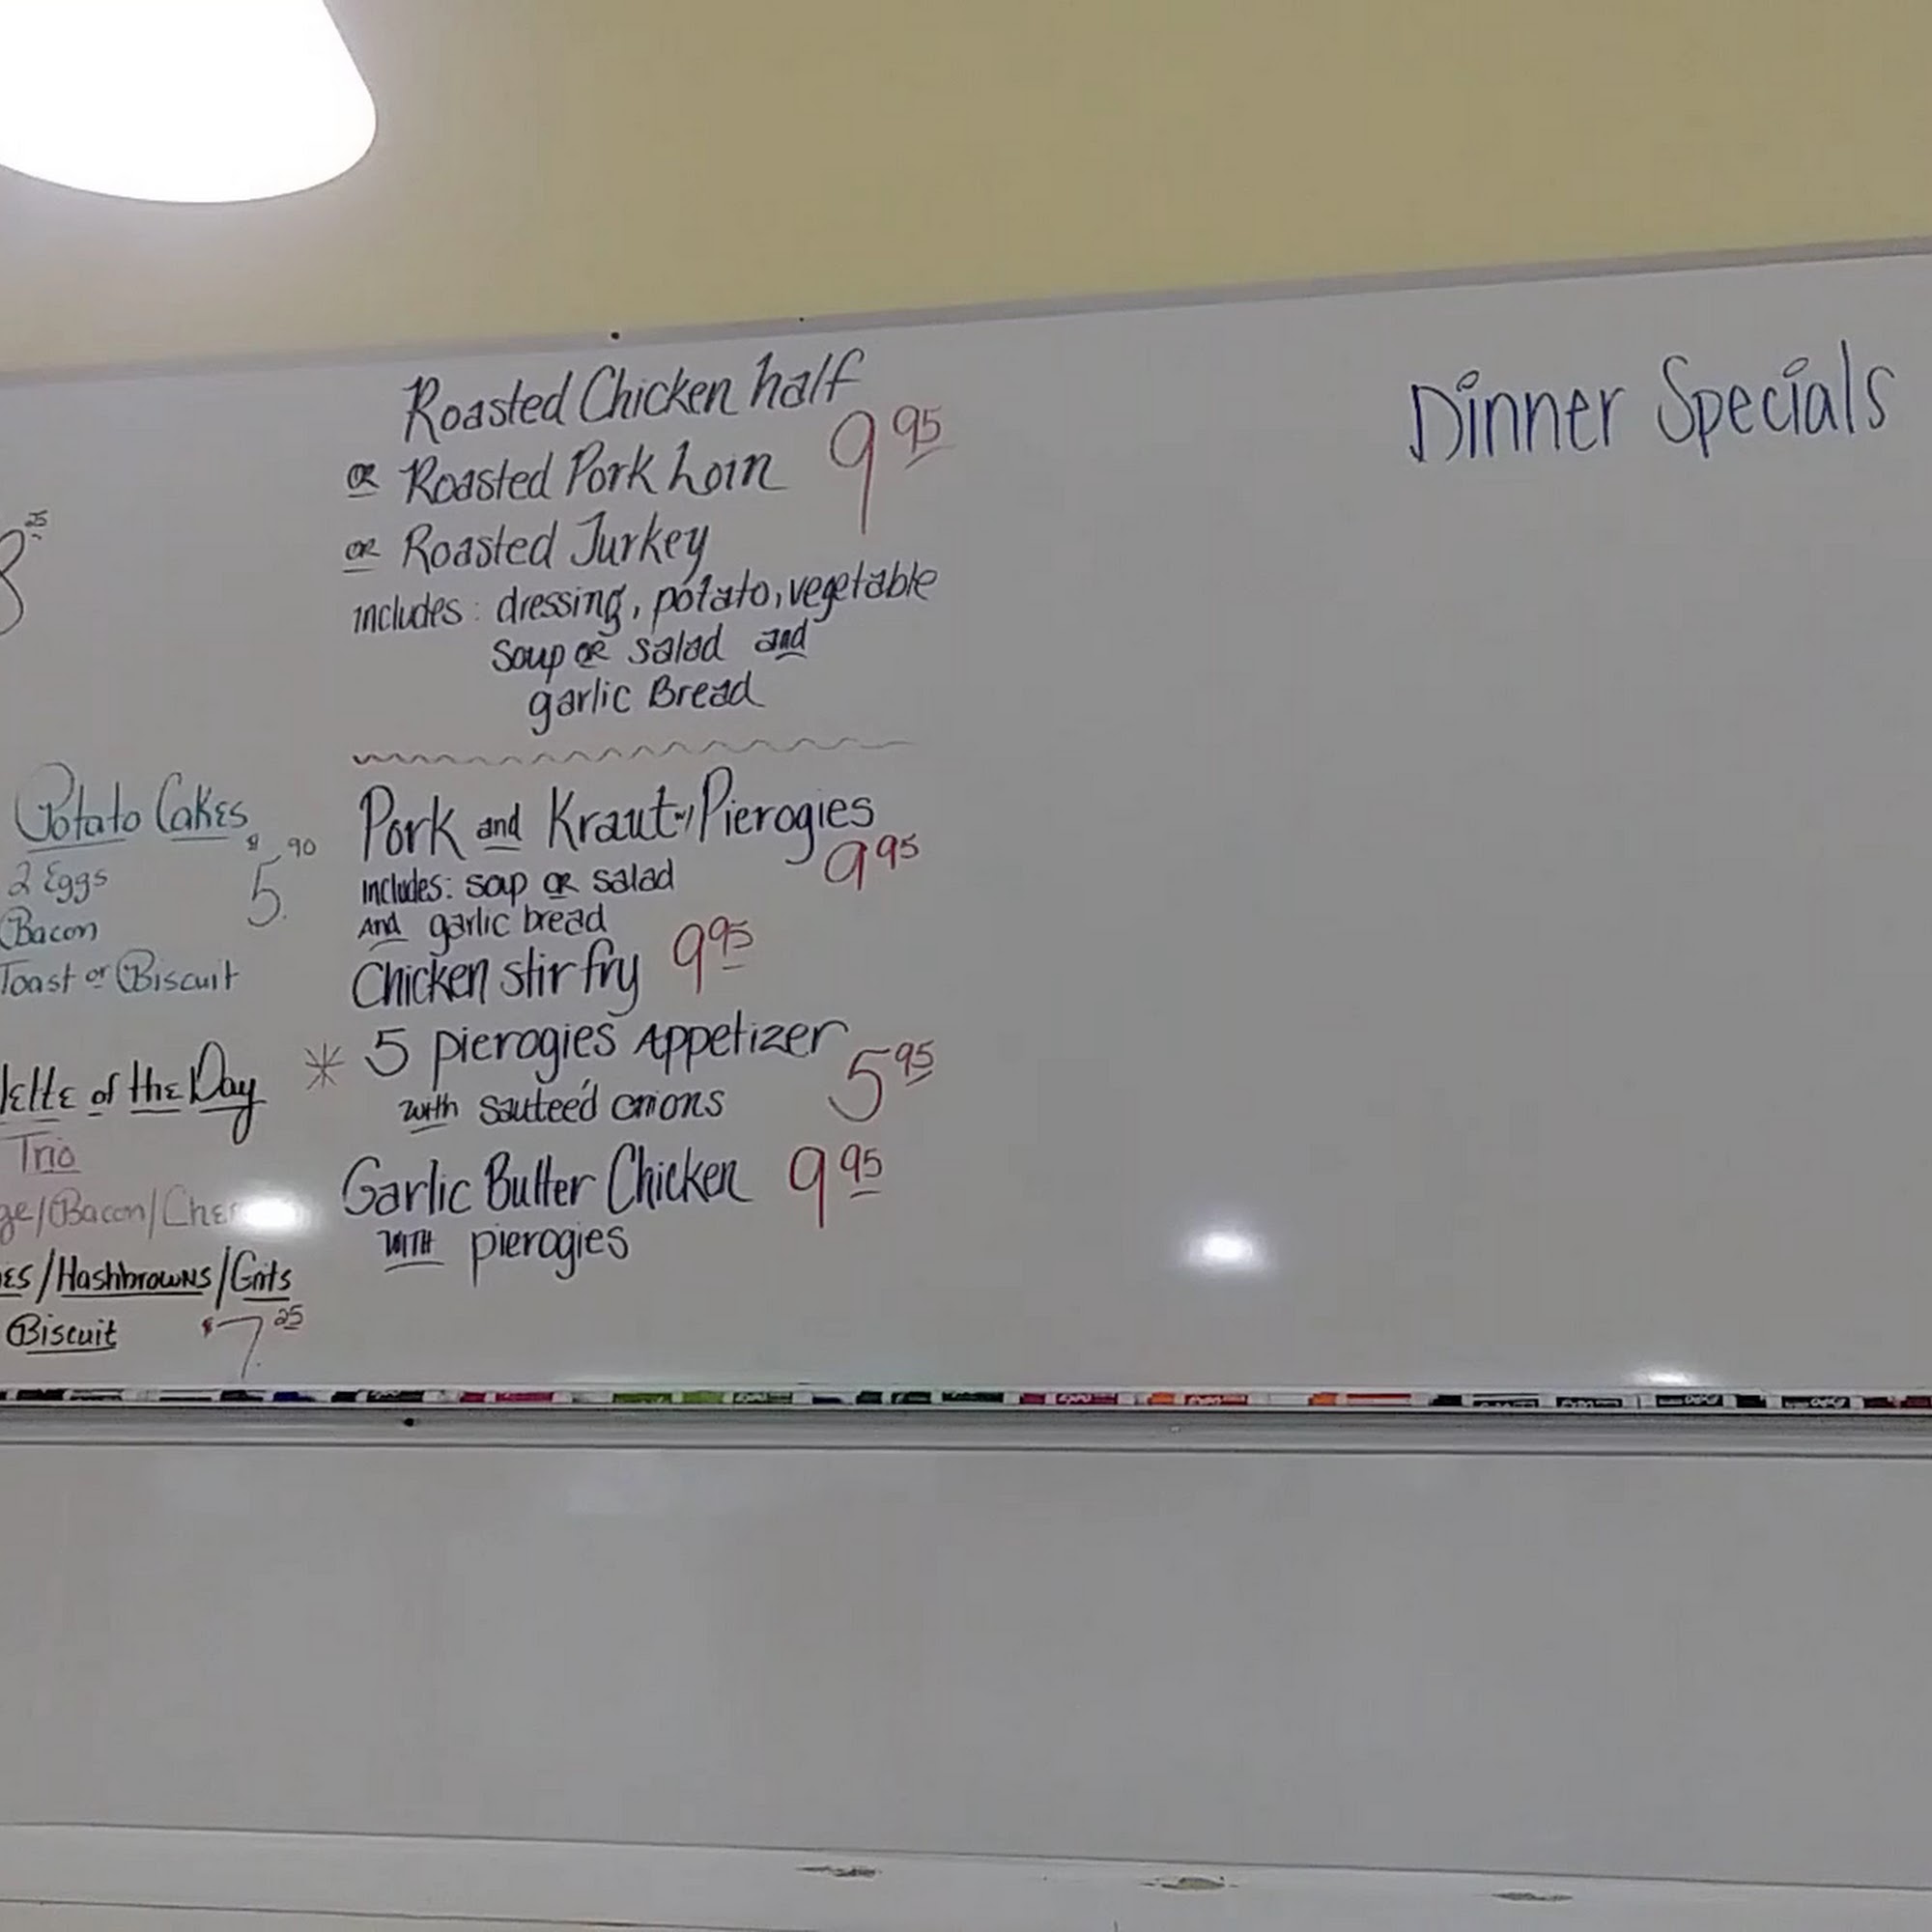 8 25
Potato Cakes
2 Eggs
$5.90
Bacon
Toast or Biscuit
of the Day
Trio
Bacon/
/Hashbrowns/Grits
Biscuit $7.25
Roasted Chicken half
OR Roasted Pork Loin 9 95
OR Roasted Turkey
Includes: dressing, potato, vegetable
Soup OR Salad and
garlic Bread
Pork and Kraut w/ Pierogies
9 95
Includes: soup OR salad
And garlic bread
Chicken stir fry 9 95
* 5 pierogies Appetizer
with sauteé'd onions 5 95
Garlic Butter Chicken 9 95
WITH pierogies
Dinner Specials